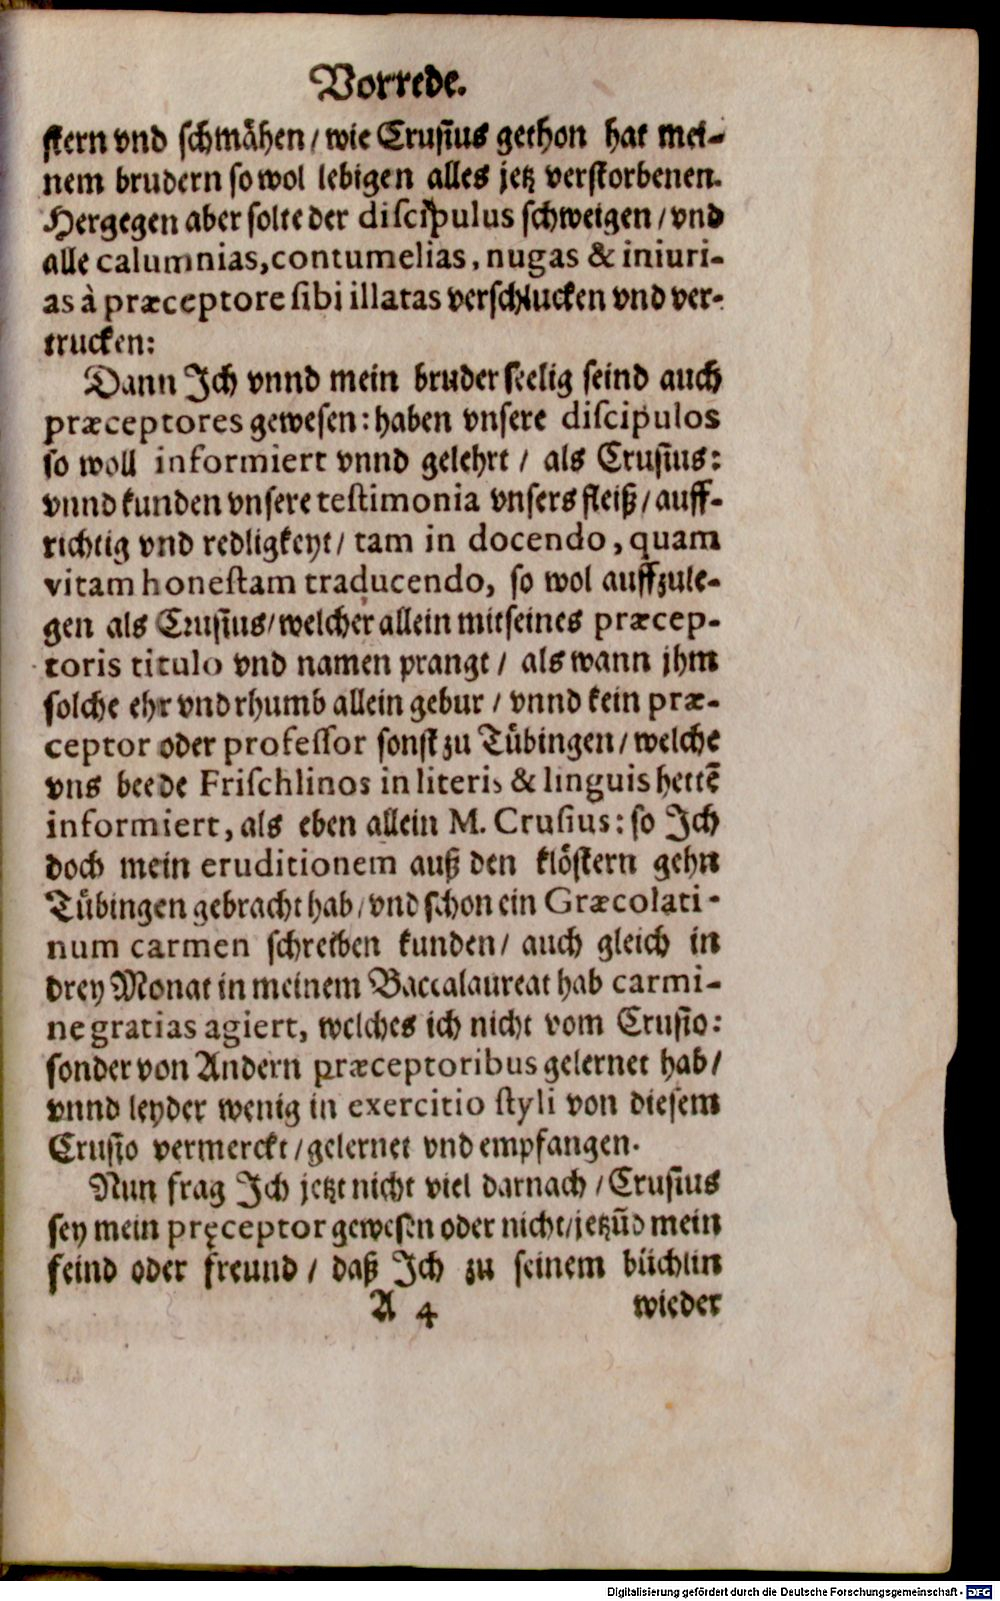 Vorrede.
stern vnd schmähen / wie Crusius gethon hat mei-
nem brudern so wol lebigen alles jetz verstorbenen.
Hergegen aber solte der discipulus schweigen / vnd
alle calumnias, contumelias, nugas & iniuri-
as à præceptore sibi illatas verschlucken vnd ver-
trucken:
Dann Ich vnnd mein bruder seelig seind auch
præceptores gewesen: haben vnsere discipulos
so woll informiert vnnd gelehrt / als Crusius:
vnnd kunden vnsere testimonia vnsers fleiß / auff-
richtig vnd redligkeyt / tam in docendo, quam
vitam honestam traducendo, so wol auffzule-
gen als Crusius / welcher allein mit seines præcep-
toris titulo vnd namen prangt / als wann jhm
solche ehr vnd rhumb allein gebur / vnnd kein præ-
ceptor oder professor sonst zu Tübingen / welche
vns beede Frischlinos in literis & linguis hettē
informiert, als eben allein M. Crusius: so Ich
doch mein eruditionem auß den klöstern gehn
Tübingen gebracht hab / vnd schon ein Græcolati-
num carmen schreiben kunden / auch gleich in
drey Monat in meinem Baccalaureat hab carmi-
ne gratias agiert, welches ich nicht vom Crusio:
sonder von Andern præceptoribus gelernet hab /
vnnd leyder wenig in exercitio styli von diesem
Crusio vermerckt / gelernet vnd empfangen.
Nun frag Ich jetzt nicht viel darnach / Crusius
sey mein pręceptor gewesen oder nicht / jetzūd mein
feind oder freund / daß Ich zu seinem büchlin
A 4 wieder
Digitalisierung gefördert durch die Deutsche Forschungsgemeinschaft - DFG